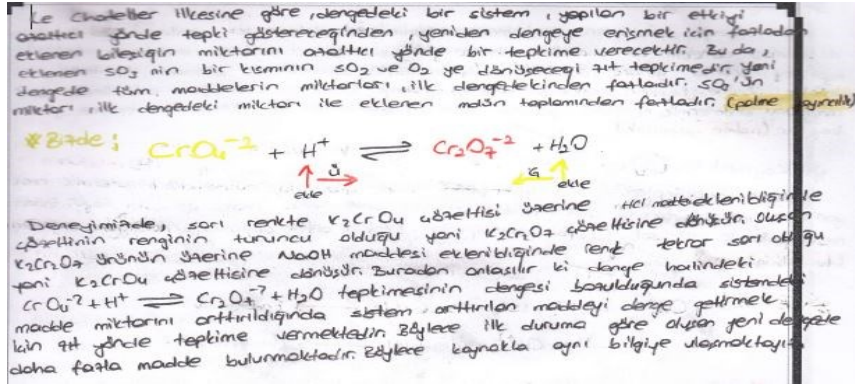 Le Chatelier ilkesine göre, dengedeki bir sistem, yapılan bir etkiyi
azaltıcı yönde tepki göstereceğinden, yeniden dengeye erişmek için fazladan
eklenen bileşiğin miktarını azaltıcı yönde bir tepkime verecektir. Bu da,
eklenen SO3 nin bir kısmının SO2 ve O2 ye dönüşeceği zıt tepkimedir. Yeni
dengede tüm maddelerin miktarları, ilk dengedekinden fazladır. SO3'ün
miktarı, ilk dengedeki miktarı ile eklenen molün toplamından fazladır. (palme yayıncılık)
* Bizde ;
CrO4⁻² + H⁺ ⇌ Cr2O7⁻² + H2O
Ü G
ekle ekle
Deneyimizde, sarı renkte K2CrO4 çözeltisi üzerine HCl maddesi eklenildiğinde
çözeltinin renginin turuncu olduğu yani K2Cr2O7 çözeltisine dönüşür. Oluşan
K2Cr2O7 ürünün üzerine NaOH maddesi eklenildiğinde renk tekrar sarı olduğu
yani K2CrO4 çözeltisine dönüşür. Buradan anlaşılır ki denge halindeki
CrO4⁻² + H⁺ ⇌ Cr2O7⁻² + H2O tepkimesinin dengesi bozulduğunda sistemdeki
madde miktarını arttırıldığında sistem arttırılan maddeyi denge getirmek
için zıt yönde tepkime vermektedir. Böylece ilk duruma göre oluşan yeni dengede
daha fazla madde bulunmaktadır. Böylece kaynakla aynı bilgiye ulaşmaktayız.